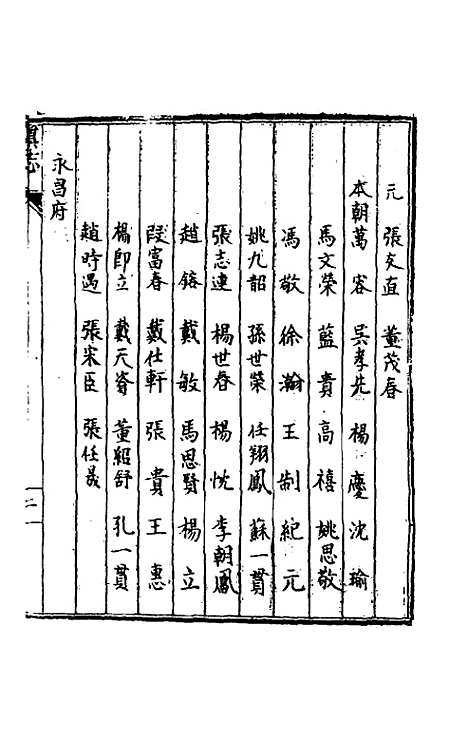 元　張文直　董茂春
本朝萬　容　吳孝先　楊　慶　沈　瑜
馬文榮　藍　貴　高　禧　姚思敬
馮　敬　徐　瀚　王　制　紀　元
姚九韶　孫世榮　任翔鳳　蘇一貫
張志連　楊世春　楊　忱　李朝鳳
趙　鎔　戴　敏　馬思賢　楊　立
段富春　戴仕軒　張　貴　王　惠
楊即立　戴天　董紹舒　孔一貫
趙時遇　張宋臣　張任晟
永昌府
滇志